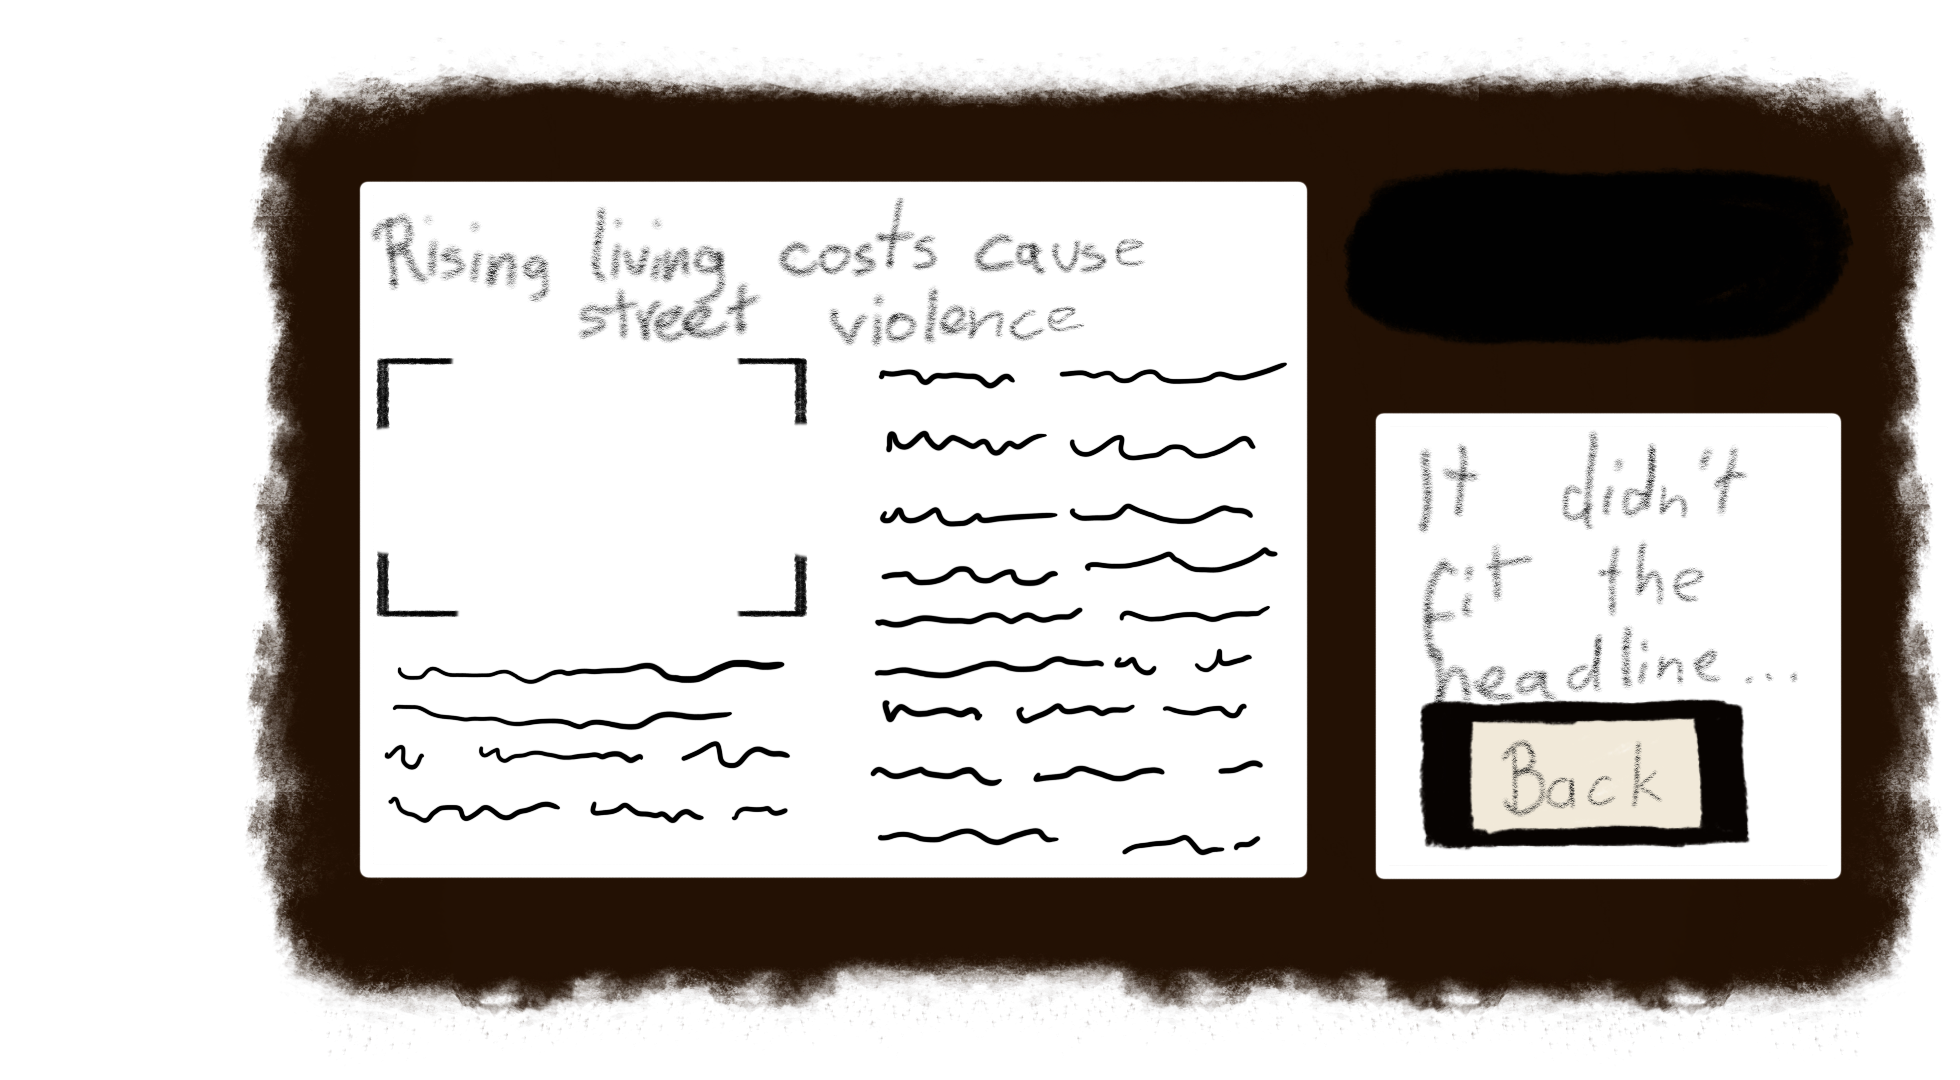 Rising living costs cause
street violence
It didn't
fit the
headline...
Back